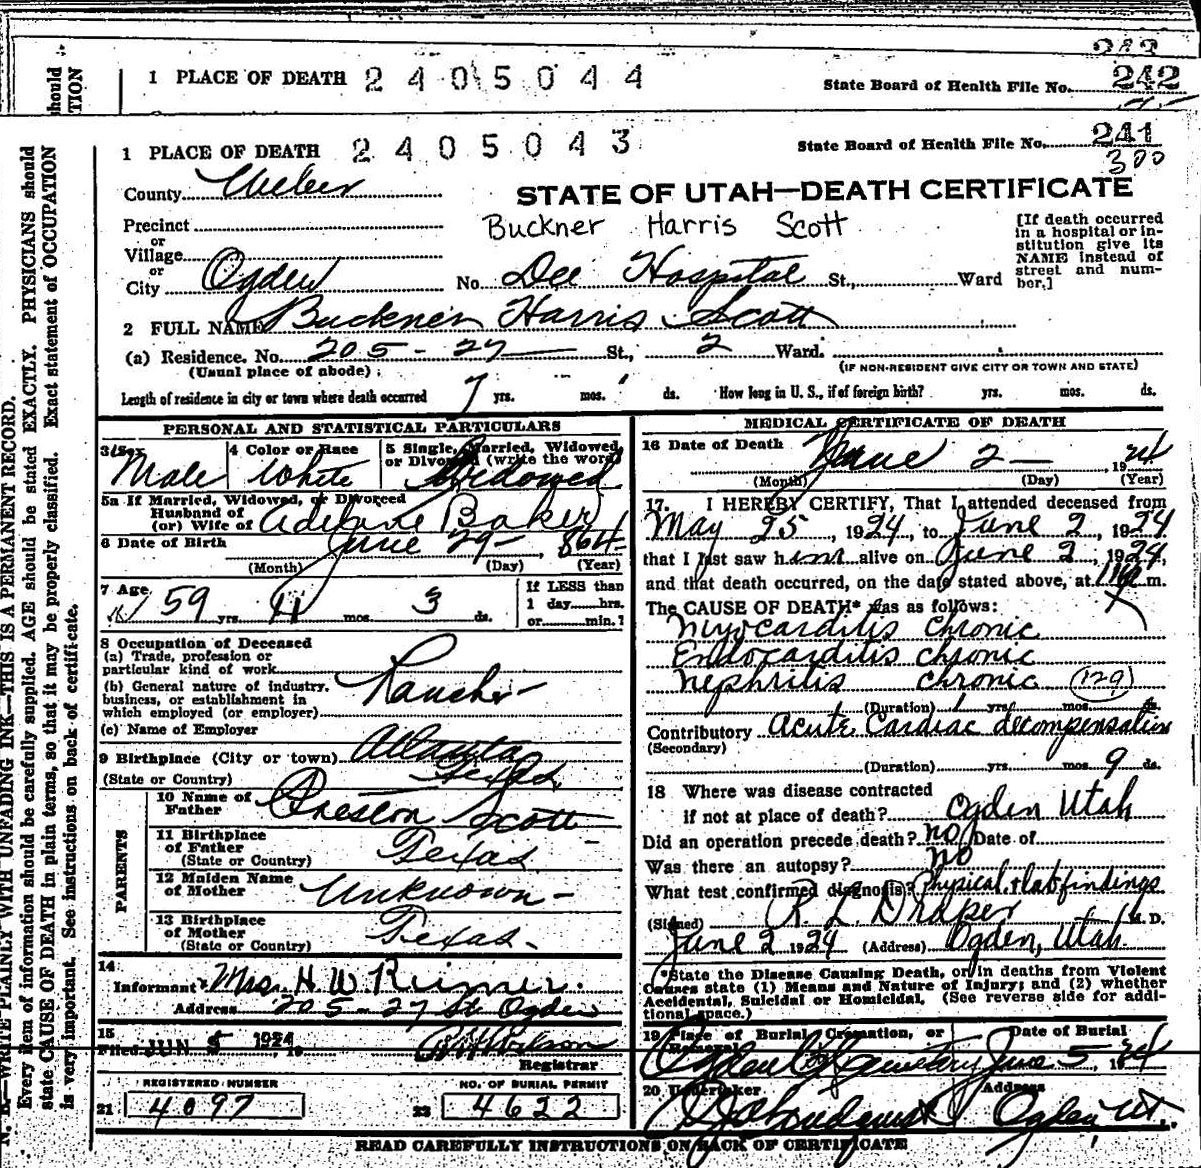 282
1 PLACE OF DEATH 2405044 State Board of Health File No. 242
1 PLACE OF DEATH 2405043 State Board of Health File No. 241
300
County Weber
STATE OF UTAH—DEATH CERTIFICATE
Precinct
Buckner Harris Scott
or
Village
or
City Ogden No. Dee Hospital St., Ward
[If death occurred
in a hospital or in-
stitution give its
NAME instead of
street and num-
ber.]
2 FULL NAME Buckner Harris Scott
(a) Residence. No. 205 - 27 St., 2 Ward.
(Usual place of abode)
(IF NON-RESIDENT GIVE CITY OR TOWN AND STATE)
Length of residence in city or town where death occurred 7 yrs. mos. ds. How long in U. S., if of foreign birth? yrs. mos. ds.
PERSONAL AND STATISTICAL PARTICULARS
3 Sex Male
4 Color or Race White
5 Single, Married, Widowed
or Divorced (write the word) Widowed
5a If Married, Widowed, or Divorced
Husband of
(or) Wife of Adelane Baker
6 Date of Birth June 29 - , 864
(Month) (Day) (Year)
7 Age 59 yrs. 11 3 ds.
If LESS than
1 day hrs.
or min.?
8 Occupation of Deceased
(a) Trade, profession or
particular kind of work
(b) General nature of industry,
business, or establishment in
which employed (or employer)
Rancher
(c) Name of Employer
9 Birthplace (City or town) Atlanta
(State or Country) Texas
PARENTS
10 Name of
Father Preston Scott
11 Birthplace
of Father
(State or Country) Texas
12 Maiden Name
of Mother Unknown -
13 Birthplace
of Mother
(State or Country) Texas -
14
Informant Mrs. H. W. Reimer.
Address 205 - 27 St. Ogden
15
Filed JUN 5 1924, 19
Registrar
REGISTERED NUMBER
21 4097
NO. OF BURIAL PERMIT
22 4622
MEDICAL CERTIFICATE OF DEATH
16 Date of Death June 2 - , 1924
(Month) (Day) (Year)
17. I HEREBY CERTIFY, That I attended deceased from
May 25, 1924, to June 2, 1924
that I last saw him alive on June 2, 1924,
and that death occurred, on the date stated above, at m.
The CAUSE OF DEATH* was as follows:
Myocarditis chronic
Endocarditis chronic
Nephritis chronic (129)
(Duration) 1 yrs. mos. ds.
Contributory Acute Cardiac decompensation
(Secondary)
(Duration) yrs. mos. 9 ds.
18 Where was disease contracted
if not at place of death? Ogden Utah
Did an operation precede death? no Date of
Was there an autopsy? no
What test confirmed diagnosis? Physical + lab findings
(Signed) R. L. Draper M. D.
June 2 1924 (Address) Ogden, Utah.
*State the Disease Causing Death, or in deaths from Violent
Causes state (1) Means and Nature of Injury; and (2) whether
Accidental, Suicidal or Homicidal. (See reverse side for addi-
tional space.)
19 Place of Burial, Cremation, or Removal Date of Burial
Ogden City Cemetery June 5, 1924
20 Undertaker Address
Ogden Ut.
READ CAREFULLY INSTRUCTIONS ON BACK OF CERTIFICATE
N. B.—WRITE PLAINLY WITH UNFADING INK—THIS IS A PERMANENT RECORD.
Every item of information should be carefully supplied. AGE should be stated EXACTLY. PHYSICIANS should
state CAUSE OF DEATH in plain terms, so that it may be properly classified. Exact statement of OCCUPATION
is very important. See instructions on back of certificate.
should
TION